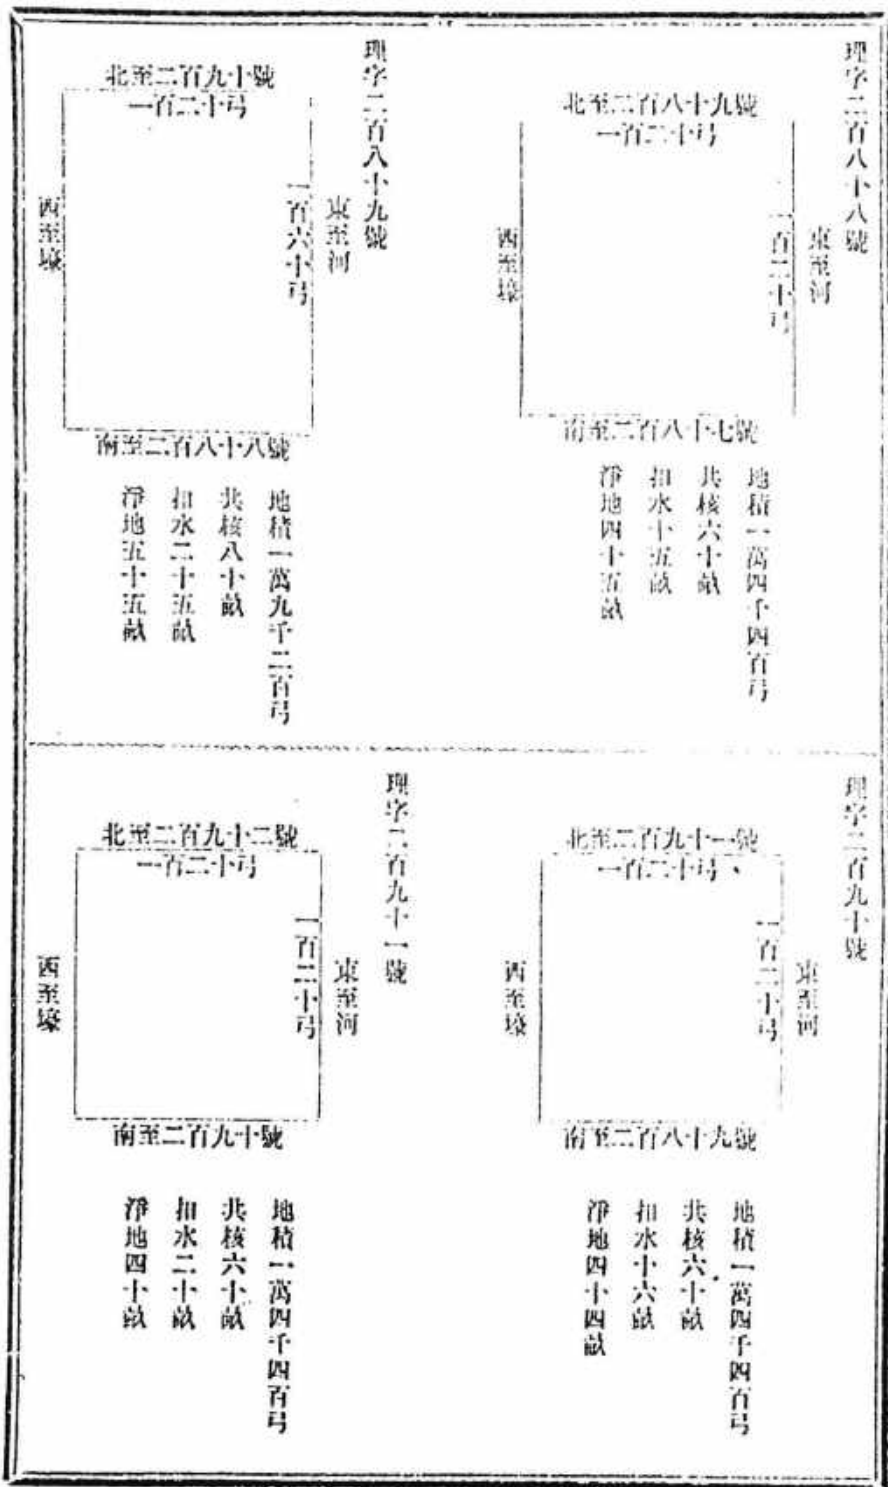 理字二百八十八號
北至二百八十九號
一百二十弓
東至河
一百二十弓
西至壕
南至二百八十七號
地積一萬四千四百弓
共核六十畝
扣水十五畝
淨地四十五畝
理字二百八十九號
北至二百九十號
一百二十弓
東至河
一百六十弓
西至壕
南至二百八十八號
地積一萬九千二百弓
共核八十畝
扣水二十五畝
淨地五十五畝
理字二百九十號
北至二百九十一號
一百二十弓
東至河
一百二十弓
西至壕
南至二百八十九號
地積一萬四千四百弓
共核六十畝
扣水十六畝
淨地四十四畝
理字二百九十一號
北至二百九十二號
一百二十弓
東至河
一百二十弓
西至壕
南至二百九十號
地積一萬四千四百弓
共核六十畝
扣水二十畝
淨地四十畝